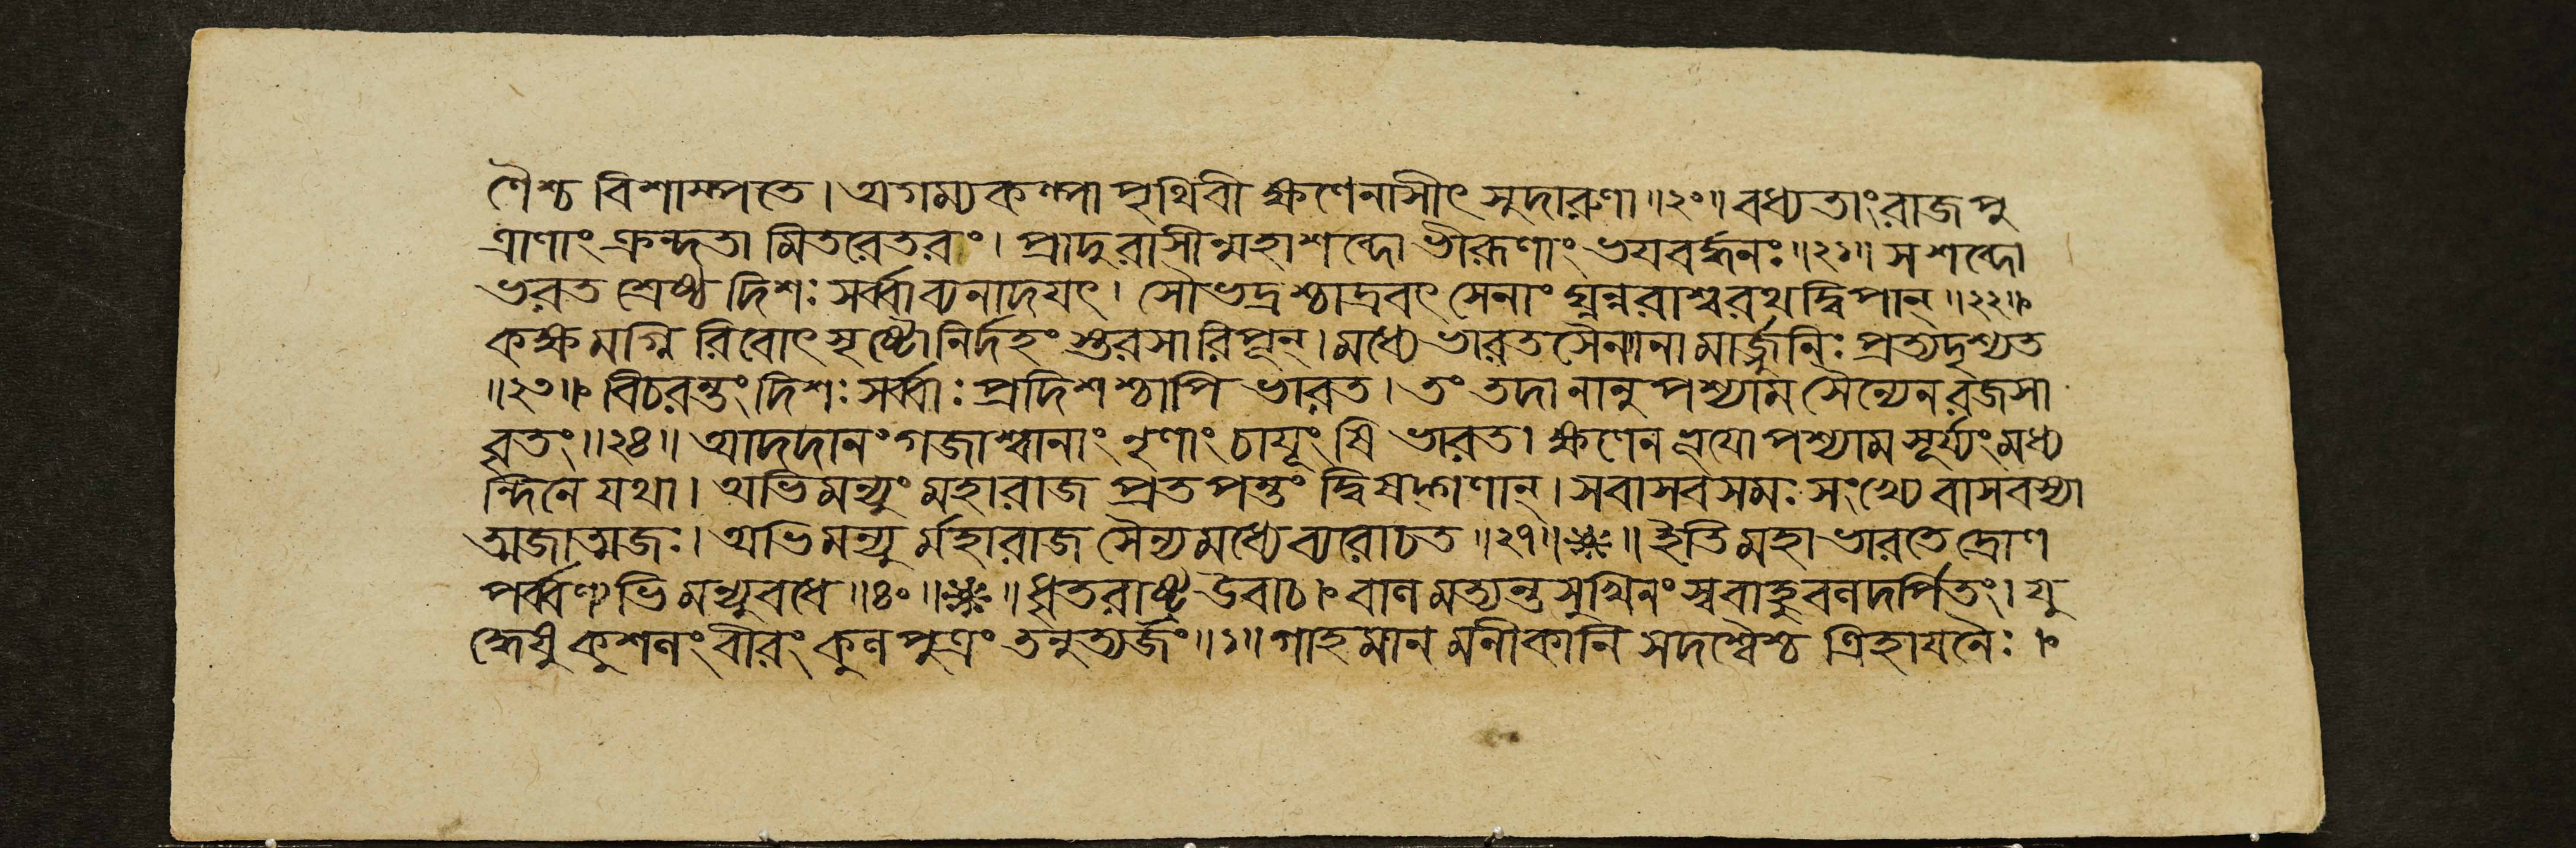 ণৈশ্চ বিশাম্পতে। অগম্যকল্পা পৃথিবী ক্ষণেনাসীৎ সুদারুণা॥২০॥ বধ্যতাং রাজপু
ত্রাণাং ক্রন্দতা মিতরেতরং। প্রাদুরাসীন্মহাশব্দো ভীরূণাং ভয়বর্দ্ধনঃ॥২১॥ স শব্দো
ভরত শ্রেষ্ঠ দিশঃ সর্ব্বা ব্যনাদয়ৎ। সৌভদ্রশ্চাদ্রবৎ সেনাং ঘ্নন্নরাশ্বরথদ্বিপান্॥২২॥
কক্ষমগ্নি রিবোৎসৃষ্টো নির্দহংস্তরসা রিপূন্। মধ্যে ভারতসৈন্যানা মার্জ্জুনিঃ প্রত্যদৃশ্যত
॥২৩॥ বিচরন্তং দিশঃ সর্ব্বাঃ প্রদিশশ্চাপি ভারত। তং তদা নানুপশ্যাম সৈন্যেন রজসা
বৃতং॥২৪॥ আদদানং গজাশ্বানাং নৃণাং চায়ূংষি ভারত। ক্ষণেন ভূয়োপশ্যাম সূর্য্যং মধ্য
ন্দিনে যথা। অভিমন্যুং মহারাজ প্রতপন্তং দ্বিষদ্গণান্। স বাসবসমঃ সংখ্যে বাসবস্যা
ত্মজাত্মজঃ। অভিমন্যু র্মহারাজ সৈন্যমধ্যে ব্যরোচত॥২৭॥ ॥ ইতি মহাভারতে দ্রোণ
পর্ব্বণ্যভিমন্যুবধে॥৪০॥ ॥ ধৃতরাষ্ট্র উবাচ। বালমত্যন্তসুখিনং স্ববাহুবলদর্পিতং। যু
দ্ধেষু কুশলং বীরং কুলপুত্রং তনুত্যজং॥১॥ গাহমান মনীকানি সদশ্বৈশ্চ ত্রিহায়নৈঃ।